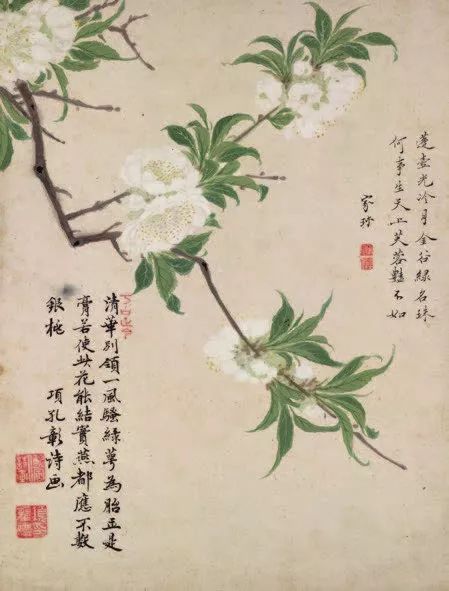 蓬壺光冷月金谷綠名珠
何事生天上芙蓉豔不如
家珍
清華別領一風騷綠萼為胎玉是
膏若使此花能結實燕都應不数
銀桃 項孔彰詩画